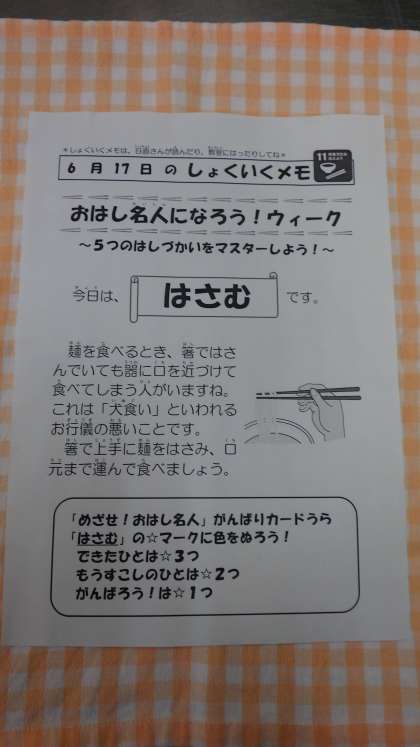 ＊しょくいくメモは、日直さんが読んだり、教室にはったりしてね＊
6月17日のしょくいくメモ
11
おはし名人になろう！ウィーク
～5つのはしづかいをマスターしよう！～
今日は、 はさむ です。
麺を食べるとき、箸ではさ
んでいても器に口を近づけて
食べてしまう人がいますね。
これは「犬食い」といわれる
お行儀の悪いことです。
箸で上手に麺をはさみ、口
元まで運んで食べましょう。
「めざせ！おはし名人」がんばりカードうら
「はさむ」の☆マークに色をぬろう！
できたひとは☆3つ
もうすこしのひとは☆2つ
がんばろう！は☆1つ